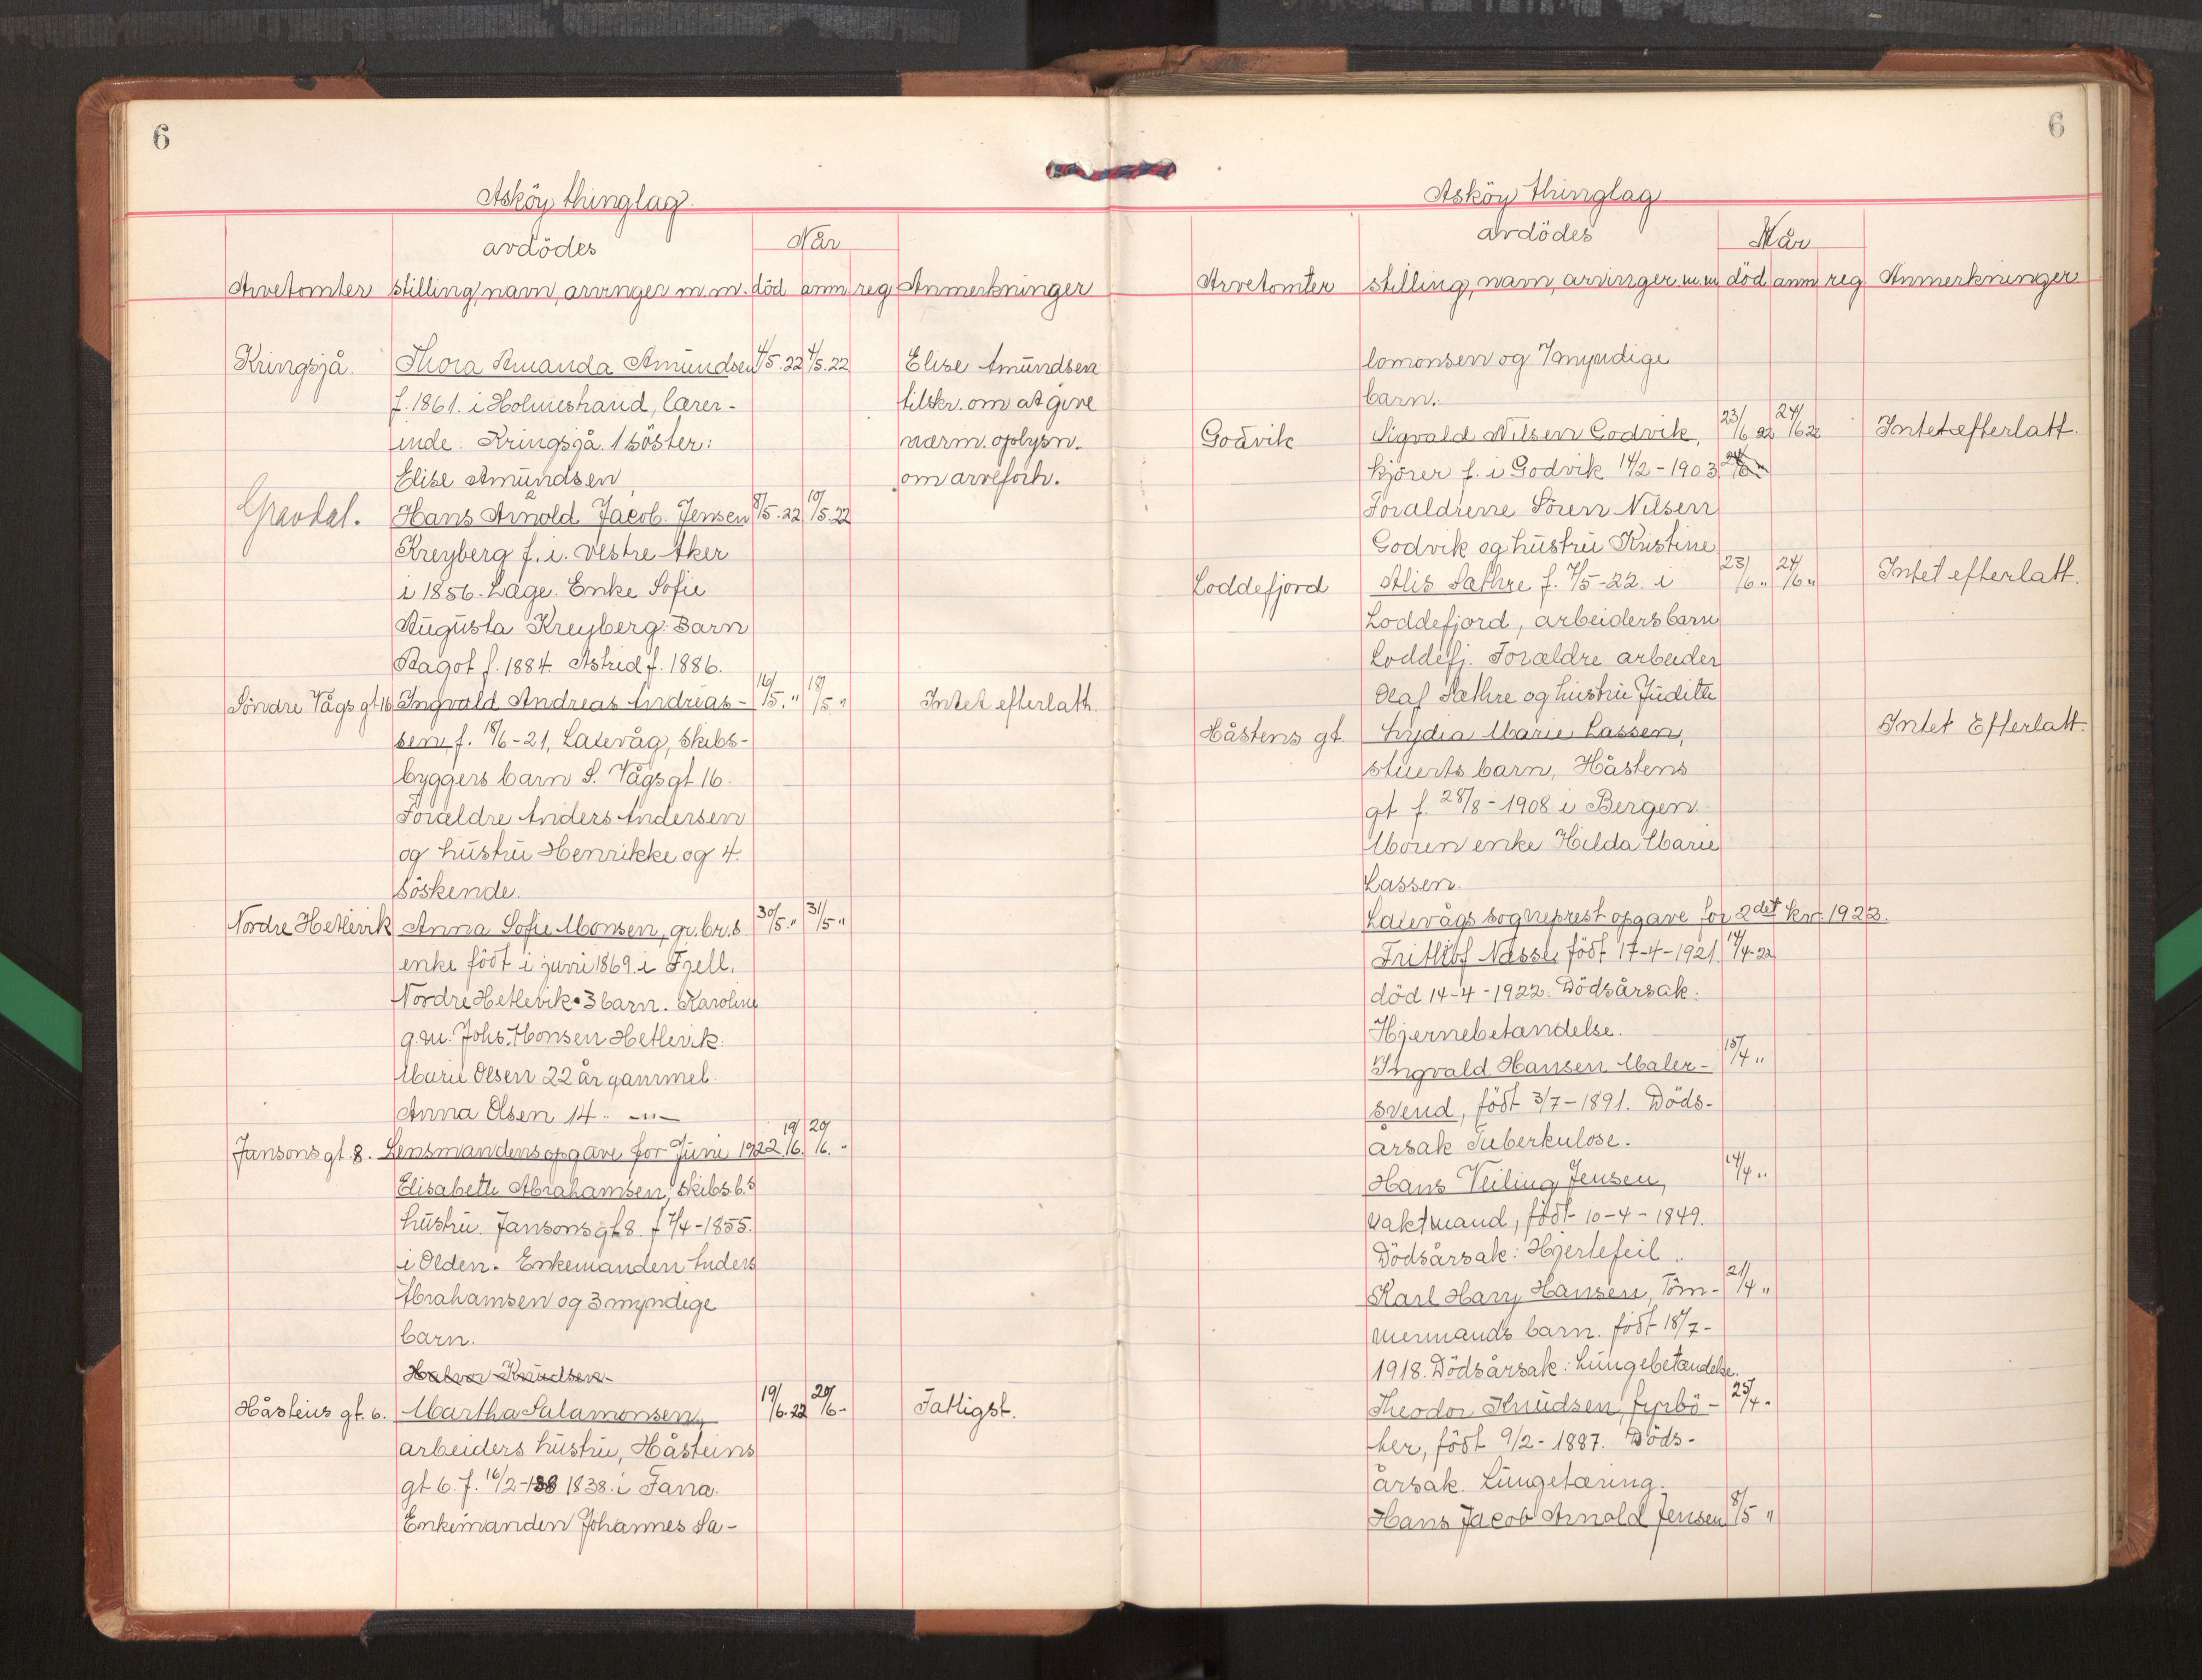 6
Asköy thinglag.
avdödes
Når
Arvetomter stilling, navn, arvinger m.m. död anm reg Anmerkninger
Kringsjå. Thora Amanda Amundsen 4/5.22 4/5.22 Elise Amundsen
f. 1861. i Holmestrand, lærer- tilskr. om at give
inde. Kringsjå. 1 söster: nærm. oplysn.
Elise Amundsen om arveforh.
Gravdal. Hans Arnold Jacob Jensen 8/5.22 10/5.22
2
Kreyberg f. i. Vestre Aker
i 1856. Læge. Enke Sofie
Augusta Kreyberg. Barn
Ragot f. 1884. Astrid f. 1886.
Söndre Vågs gt 16 Ingvald Andreas Andreas- 16/5. " 18/5 " Intet efterlatt.
sen f. 18/6-21, Laxevåg, skibs-
byggers barn S. Vågsgt 16.
Forældre Anders Andersen
og hustru Henrikke og 4.
söskende.
Nordre Hetlevik Anna Sofie Monsen, gr.br.s 30/5. " 31/5 "
enke födt i juni 1869. i Fjell.
Nordre Hetlevik. 3 barn. Karoline
g.m. Johs. Monsen Hetlevik.
Marie Olsen 22 år gammel.
Anna Olsen 14 .. -"-
Jansons gt. 8. Lensmandens opgave for Juni 1922 19/6. 20/6. "
Elisabeth Abrahamsen, skibs.b.s
hustru. Jansons gt 8. f 7/4-1855.
i Olden. Enkemanden Anders
Abrahamsen og 3 myndige
barn.
Halvor Knudsen
Håsteins gt. 6. Martha Salamonsen, 19/6.22 20/6- Fattigst.
arbeiders hustru, Håsteins
gt 6. f. 16/2-188 1838. i Fana.
Enkemanden Johannes Sa-
6
Asköy thinglag
avdödes
Når
Arvetomter stilling, navn, arvinger m.m död anm reg Anmerkninger.
lomonsen og 7 myndige
barn.
Godvik Sigvald Nilsen Godvik, 23/6 22 24/6 22 Intet efterlatt.
kjörer f. i Godvik 14/2-1903.
Foraldrene Sören Nilsen
Godvik og hustru Kristine
Loddefjord Alis Sæthre f. 7/5-22. i 23/6 " 24/6 " Intet efterlatt.
Loddefjord, arbeidersbarn
Loddefj. Forældre arbeider
Olaf Sæthre og hustru Judith
Håstens gt. Lydia Marie Lassen, Intet Efterlatt.
stuerts barn, Håstens
gt f. 28/8-1908 i Bergen.
Moren enke Hilda Marie
Lassen.
Laxevågs sogneprest opgave for 2det kv. 1922.
Frithlof Nesse, födt 17-4-1921. 14/4-22
död 14-4-1922. Dödsårsak:
Hjernebetændelse.
Ingvald Hansen Maler- 15/4 "
svend, födt 3/7-1891. Döds-
årsak Tuberkulose.
Hans Veiling Jensen, 14/4 "
vaktmand, födt 10-4-1849.
Dödsårsak: Hjertefeil.
Karl Harry Hansen, Töm- 21/4 "
mermands barn. födt 18/7-
1918. Dödsårsak: Lungebetændelse.
Theodor Knudsen, fyrbö- 25/4 "
ter, födt 9/2-1887. Döds-
årsak. Lungetæring.
Hans Jacob Arnold Jensen 8/5 "